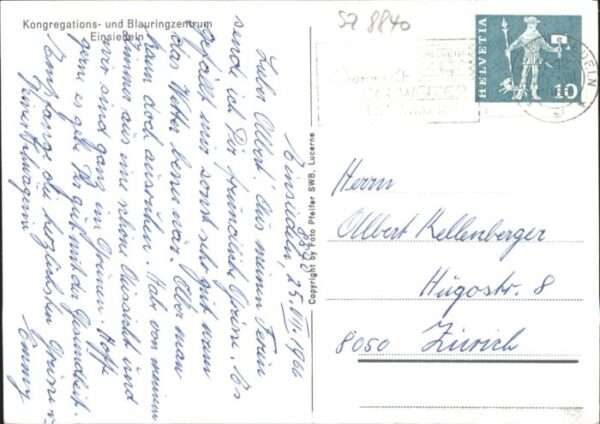 Kongregations- und Blauringzentrum
Einsiedeln
SZ 8840
HELVETIA
10
Einsiedeln, 25. VII. 1966
Lieber Albert! Aus meinen Ferien
sende ich Dir freundliche Grüsse. Es
gefällt mir sonst sehr gut wenn
das Wetter besser wär. Aber man
kann doch ausruhen. Hab von meinem
Zimmer aus eine schöne Aussicht und
wir sind ganz im Grünen. Hoffe
gern es gehe Dir gut mit der Gesundheit.
Empfange die herzlichsten Grüsse v.
Schwägerin
Emmy
Copyright by Foto Pfeifer SWB, Lucerne
Herrn
Albert Kellenberger
Hügostr. 8
8050 Zürich